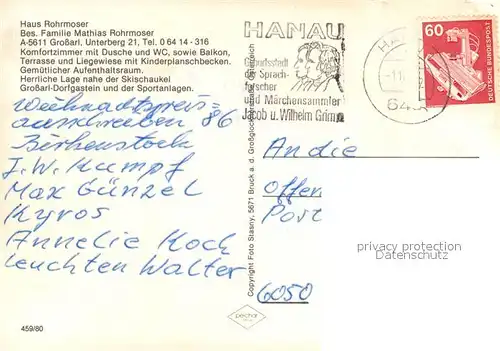 Haus Rohrmoser
Bes. Familie Mathias Rohrmoser
A-5611 Großarl, Unterberg 21, Tel. 0 64 14 - 316
Komfortzimmer mit Dusche und WC, sowie Balkon,
Terrasse und Liegewiese mit Kinderplanschbecken.
Gemütlicher Aufenthaltsraum.
Herrliche Lage nahe der Skischaukel
Großarl-Dorfgastein und der Sportanlagen.
Weihnachtspreis=
ausschreiben 86
Birkenstock
J. W. Kumpf
Max Günzel
Kyros
Annelie Koch
leuchten Walter
459/80
Copyright Foto Stasny, 5671 Bruck a. d. Großglockner
HANAU
Geburtsstadt
der Sprach-
forscher
und Märchensammler
Jacob u. Wilhelm Grimm
HA
-1.11
64
60
DEUTSCHE BUNDESPOST
An die
Offen
Post
6050
privacy protection
watermark
pechar